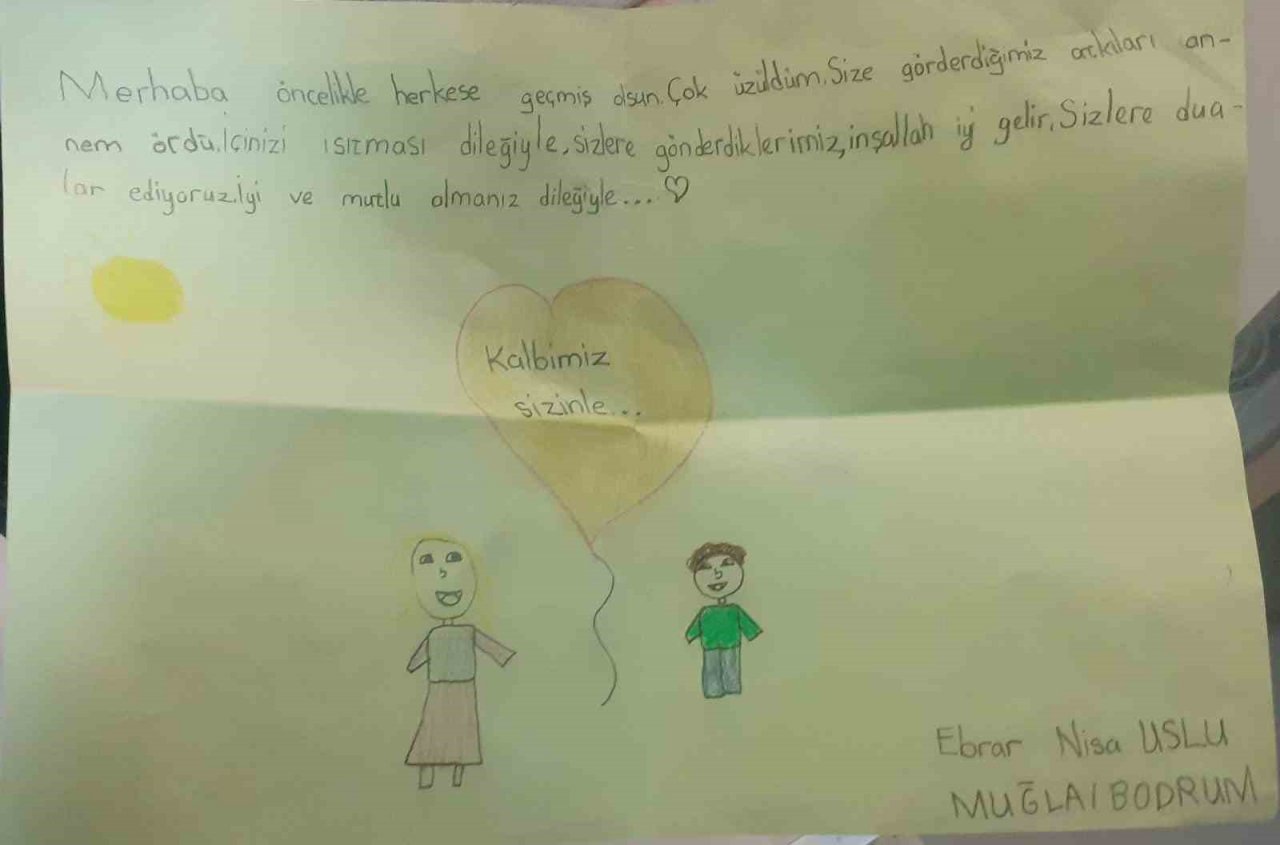 Merhaba öncelikle herkese geçmiş olsun.Çok üzüldüm.Size görderdiğimiz atkıları an-
nem ördü.İçinizi ısıtması dileğiyle,sizlere gönderdiklerimiz,inşallah iyi gelir.Sizlere dua-
lar ediyoruz.İyi ve mutlu olmanız dileğiyle...♡
Kalbimiz
sizinle...
Ebrar Nisa USLU
MUĞLA/BODRUM